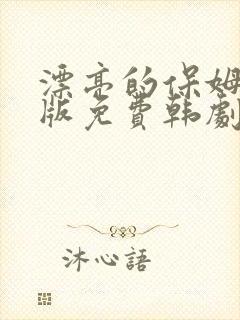 漂亮的保姆
版免費韩劇
沐心語